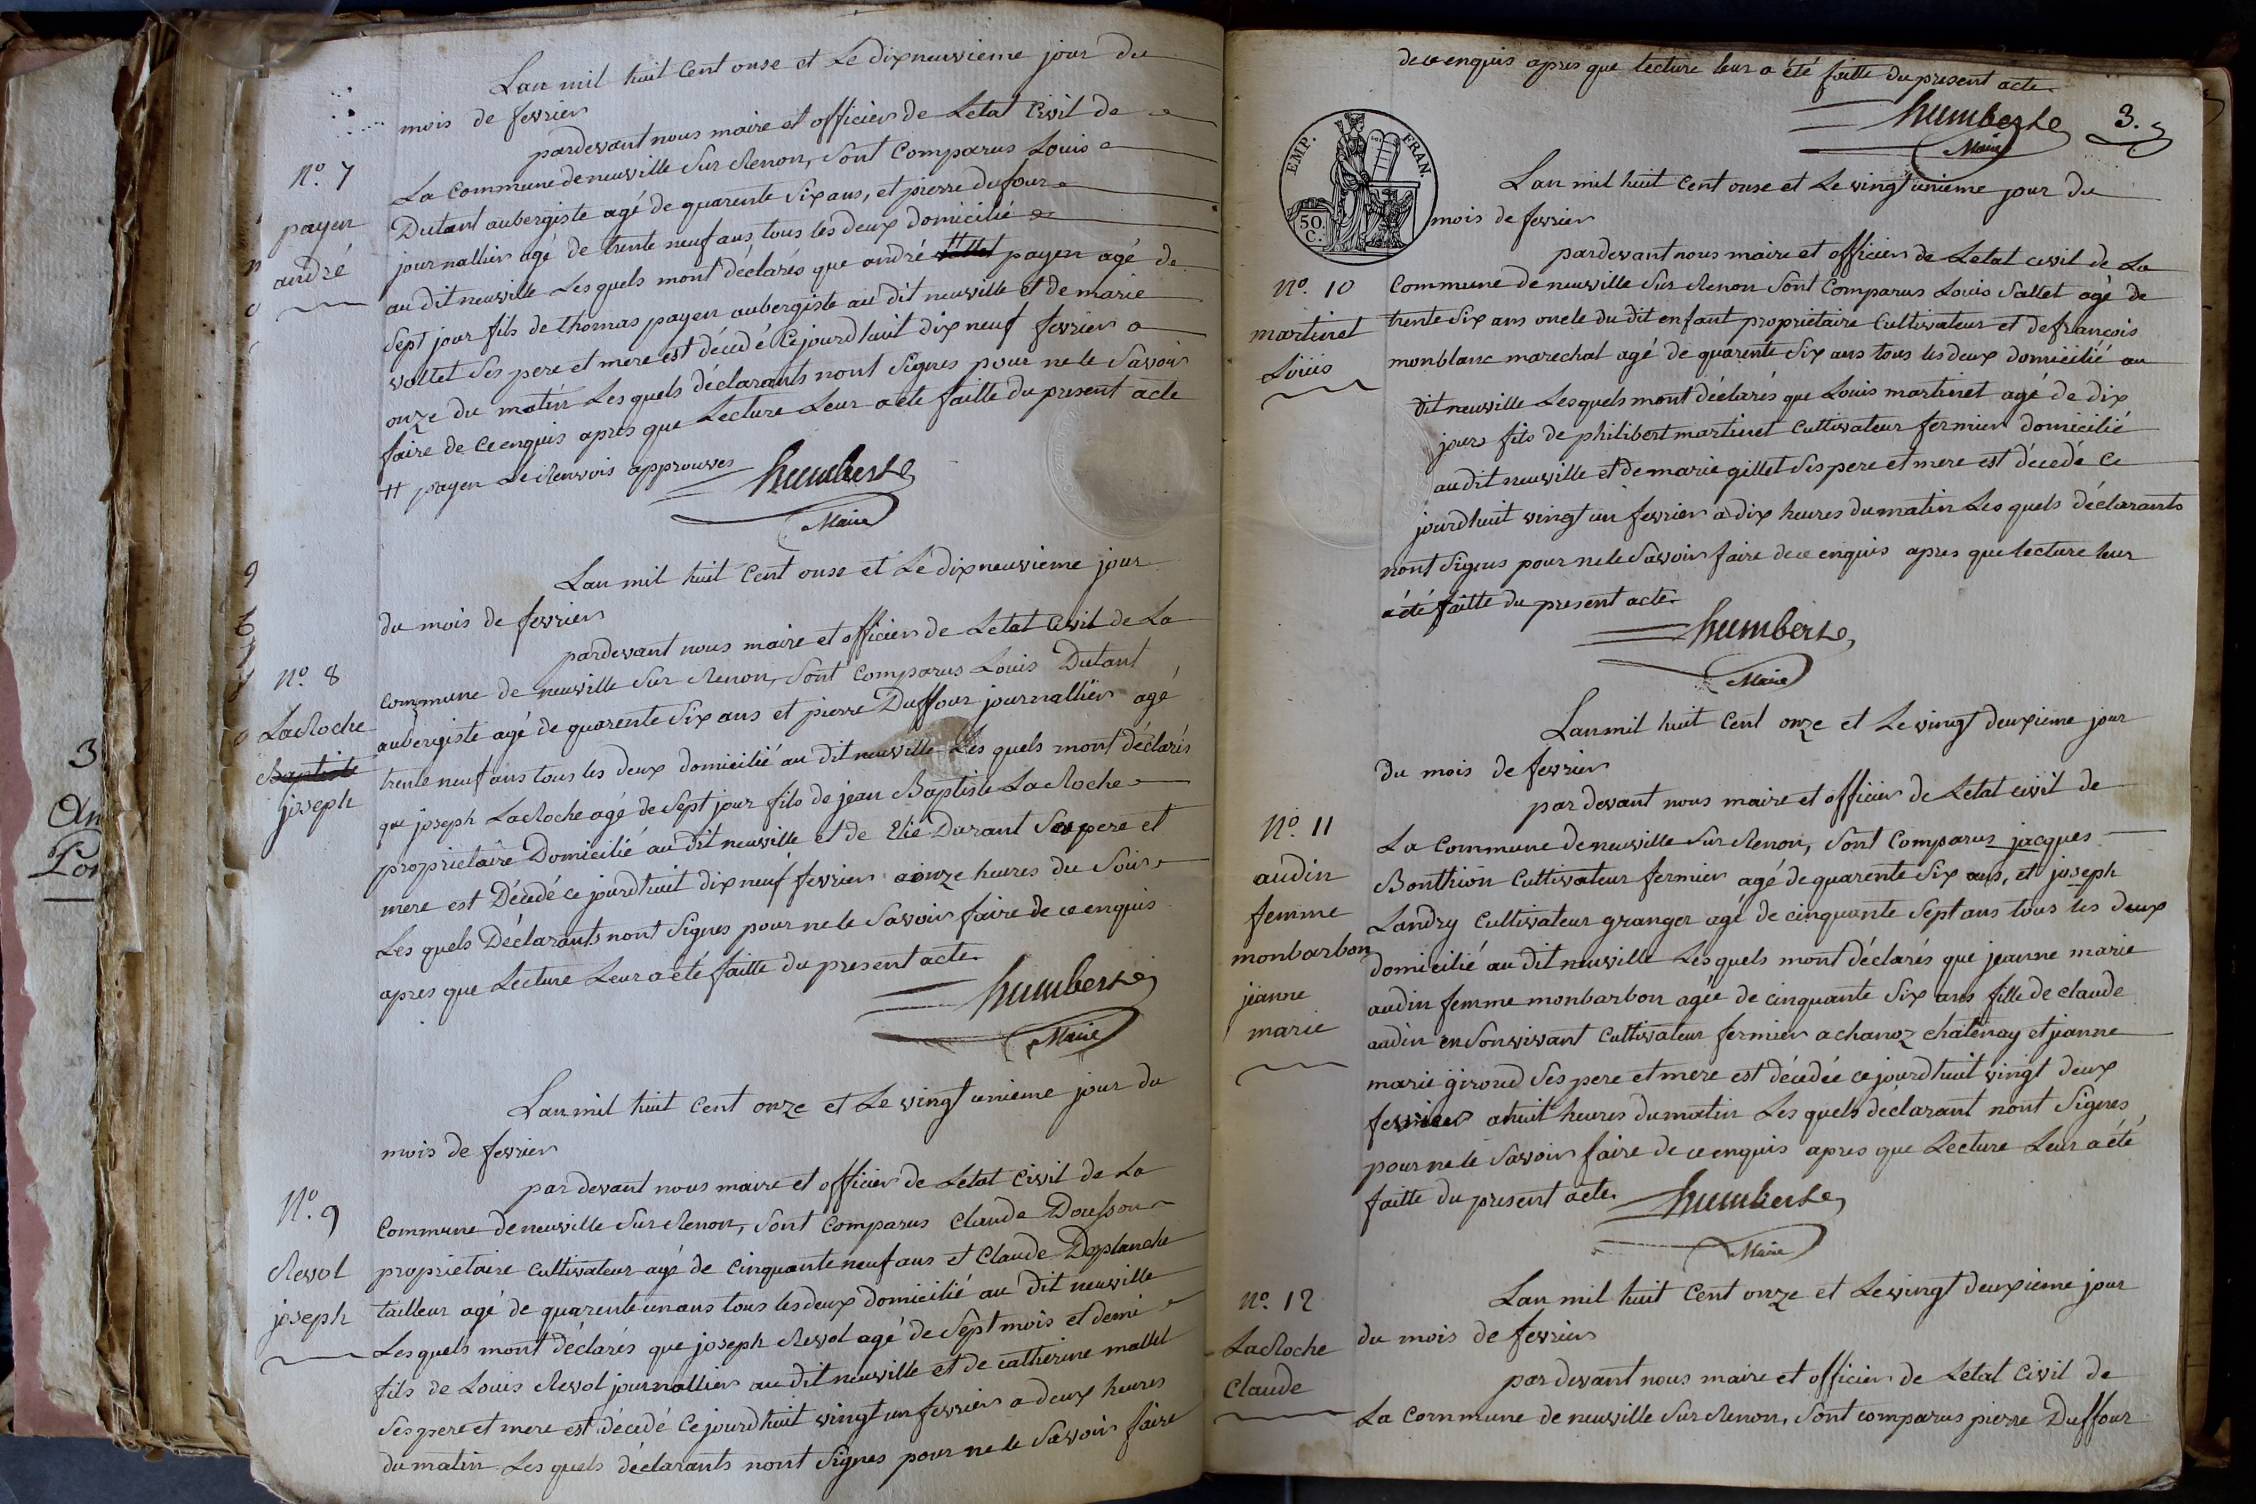 Lan mil huit Cent onse et Le dixneuvieme jour du
mois de fevrier
pardevant nous maire et officier de Letat Civil de
La Commune de neuville Sur Renon, Sont Comparus Louis
Dutant aubergiste agé de quarente Six ans, et pierre dufour
journallier agé de trente neuf ans, tous les deux domicilié
au dit neuville Les quels mont déclarés que andré payen agé de
Sept jour fils de thomas payen aubergiste au dit neuville et de marie
vallet Ses pere et mere est décédé Cejourdhuit dix neuf fevrier a
onze du matin Les quels déclarants nont Signes pour ne le Savoir
faire de ce enquis apres que Lecture Leur a ete faitte du present acte
tt payen Le Renvois approuves humbert
Maire
N° 7
payen
andré
Lan mil huit Cent onse et Le dixneuvieme jour
du mois de fevrier
pardevant nous maire et officier de Letat Civil de La
commune de neuville Sur Renon, Sont Comparus Louis Dutant
aubergiste agé de quarente Six ans et pierre Duffour journallier agé
trente neuf ans tous les deux domicilié au dit neuville Les quels mont déclarés
que joseph LaRoche agé de Sept jour fils de jean Baptiste LaRoche
proprietaire Domicilié au dit neuville et de Elie Durant Ses pere et
mere est Décédé ce jourdhuit dix neuf fevrier a onze heures du Soir
Les quels Déclarants nont Signes pour ne le Savoir faire de ce enquis
apres que Lecture Leur a été faitte du present acte.
humbert
Maire
N° 8
LaRoche
Baptiste
joseph
Lan mil huit Cent onze et Le vingt unieme jour du
mois de fevrier
par devant nous maire et officier de Letat Civil de La
Commune de neuville Sur Renon, Sont Comparus Claude Dousson
proprietaire cultivateur agé de Cinquante neuf ans et Claude Deplanche
tailleur agé de quarente un ans tous les deux domicilié au dit neuville
Les quels mont déclarés que joseph Revol agé de Sept mois et demi
fils de Louis Revol journallier au dit neuville et de catherine mallet
Ses pere et mere est décédé Cejourdhuit vingt un fevrier a deux heures
du matin Les quels déclarants nont Signes pour ne le Savoir faire
N° 9
Revol
joseph
3
de ce enquis apres que lecture leur a été faitte du present acte.
humbert
Maire
3.
EMP. FRAN.
50 C.
Lan mil huit Cent onse et Le vingt unieme jour du
mois de fevrier
pardevant nous maire et officier de Letat civil de La
Commune de neuville Sur Renon Sont Comparus Louis Sallet agé de
trente Six ans oncle du dit enfant proprietaire Cultivateur et de françois
monblanc marechal agé de quarente Six ans tous les deux domicilié au
dit neuville Lesquels mont déclarés que Louis martinet agé de dix
jours fils de philibert martinet Cultivateur fermier domicilié
au dit neuville et de marie gillet Ses pere et mere est décédé Ce
jourdhuit vingt un fevrier a dix heures du matin Les quels déclarants
nont Signes pour ne le Savoir faire de ce enquis apres que lecture leur
a été faitte du present acte.
humbert
Maire
N° 10
martinet
Louis
Lan mil huit Cent onze et Le vingt deuxieme jour
du mois de fevrier
par devant nous maire et officier de Letat civil de
La Commune de neuville Sur Renon, Sont Comparus jacques
Bonthion Cultivateur fermier agé de quarente Six ans, et joseph
Landry Cultivateur granger agé de cinquante Sept ans tous les deux
domicilié au dit neuville Les quels mont déclarés que jeanne marie
audin femme monbarbon agée de cinquante Six ans fille de claude
audin en Son vivant Cultivateur fermier a chanoz chatenay et jeanne
marie giroud Ses pere et mere est décédée ce jourdhuit vingt deux
fevrier a huit heures du matin Les quels déclarant nont Signes,
pour ne le Savoir faire de ce enquis apres que Lecture Leur a été
faitte du present acte. humbert
Maire
N° 11
audin
femme
monbarbon
jeanne
marie
Lan mil huit Cent onze et Le vingt deuxieme jour
du mois de fevrier
par devant nous maire et officier de Letat Civil de
La Commune de neuville Sur Renon, Sont comparus pierre Duffour
N° 12
LaRoche
Claude